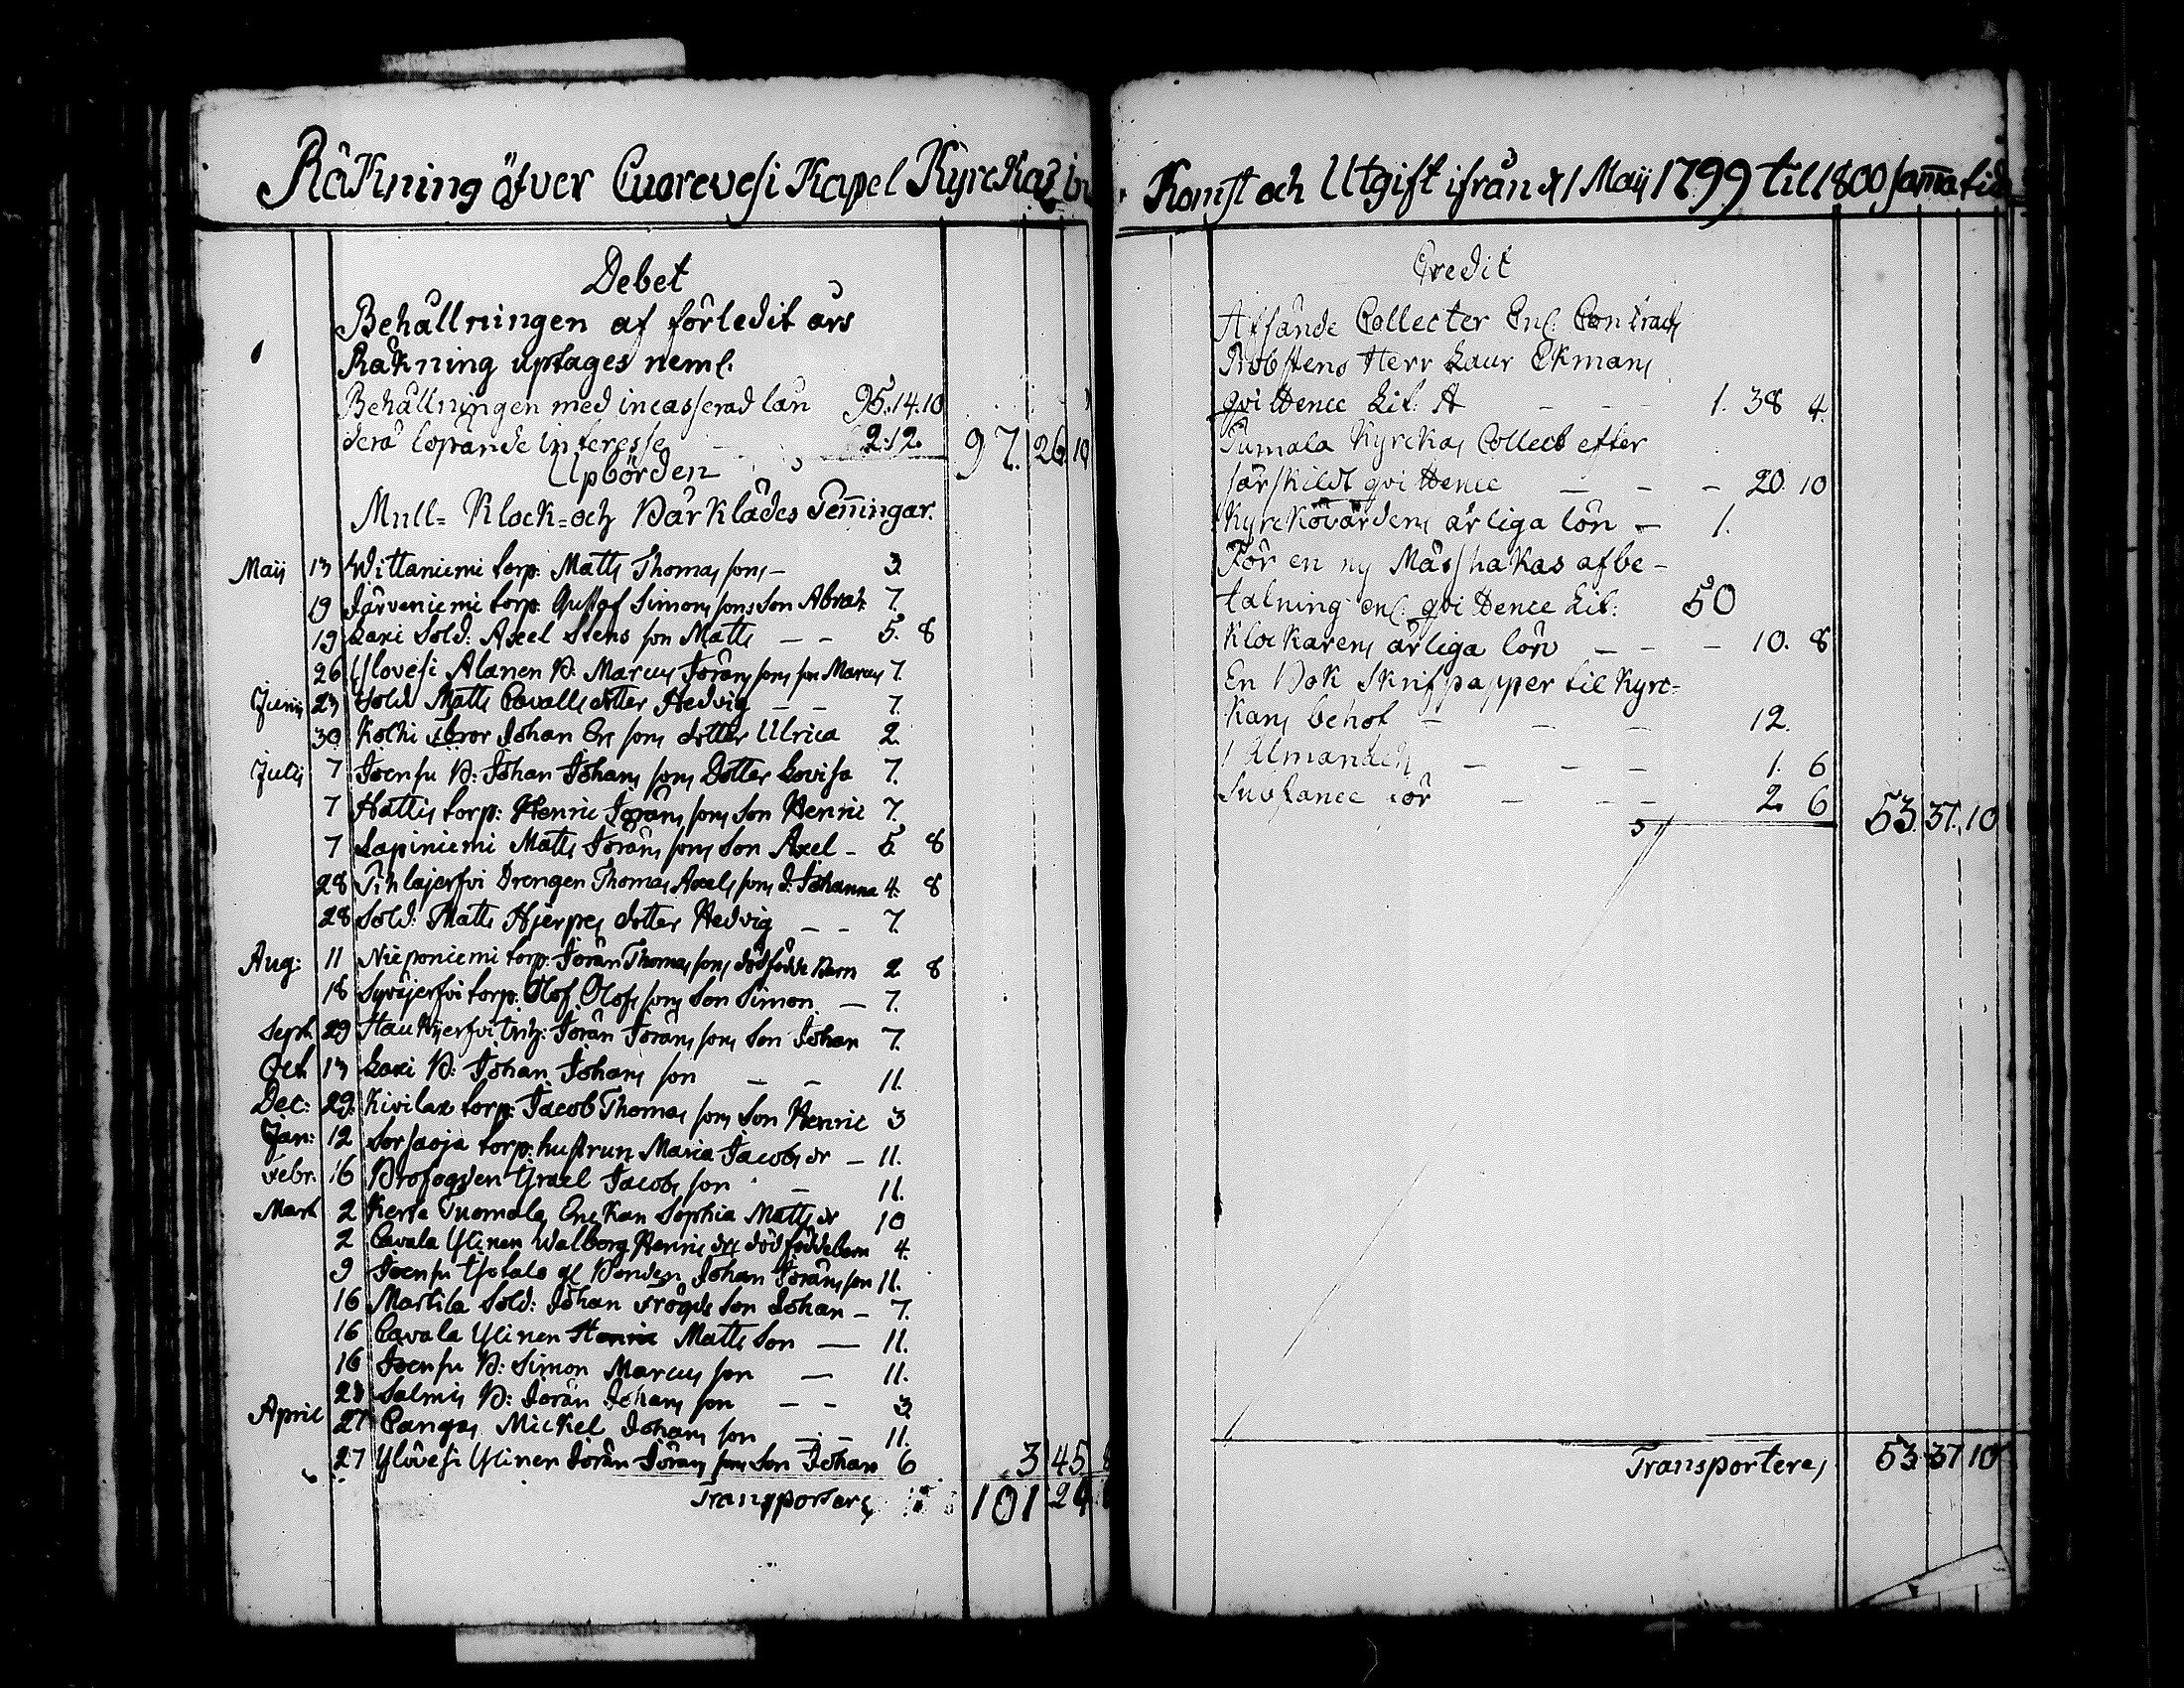 Räkning öfver Cuorevesi Kapel Kyrckas in
Debet
Behållningen af förledit års
Räkning uptages neml.
Behållningen med incasserad lån 95. 14. 10
derå löpande interesse 2: 12. 97. 26. 10
Upbörden
Mull= Klock= och Bårklädes Penningar.
Maij 13 Wittaniemi torp: Matts Thomas sons – 3.
19 Järveniemi torp: Gustaf Simons sons Son Abrah: 7.
19 Laxi Sold: Axel Stens son Matts – – 5. 8
26 Ylovesi Alanen B: Marcus Jörans sons son Marcus 7.
Junij 23 Sold Matts Cavalls dotter Hedvig – – 7.
30 Kolhi Johan Er: sons dotter Ulrica 2.
Julij 7 Joensu B: Johan Johans sons Dotter Lovisa 7.
7 Hattis torp: Henric Jörans sons Son Henric 7.
7 Lapiniemi Matts Jörans sons Son Axel – 5. 8
28 Pihlajerfvi Drengen Thomas Axels sons d: Johanna 4. 8
28 Sold: Matts Hjerpes dotter Hedvig – – 7.
Aug: 11 Nieponiemi torp: Jöran Thomas sons dödfödde Barn 2. 8
18 Syväjerfvi torp: Olof Olofs sons Son Simon – 7.
Sept 29 Haukijerfvi Jöran Jörans sons Son Johan 7.
Oct 13 Laxi B: Johan Johans son – – 11.
Dec: 29. Kivilax torp: Jacob Thomas sons Son Henric 3
Jan: 12 Sorsaoja torp: hustrun Maria Jacobs dr – 11.
Febr. 16 Profogden Israel Jacobs son – 11.
Mart 2 Kerte Tuomola Enckan Sophia Matts dr 10
2 Cavala Ylinen Walborg Henrics drs dödfödde barn 4.
9 Joensu Ysotalo gl Bonden Johan Jörans son 11.
16 Martila Sold: Johan Frögds Son Johan – 7.
16 Cavala Ylinen Henric Matts Son – 11.
16 Joensu B: Simon Marcus son – 11.
23 Salmis B: Jöran Johans son – – 3.
April 27 Cangas Mickel Johans son – – 11.
27 Ylövesi Ylinen Jöran Jörans sons Son Johan 6 3 45 8
Transporteras 101 24
Komst och Utgift ifrån d 1 Maij 1799 til 1800 samma tid
Credit
Afsände Collecter Enl: Contracts
Probstens Herr Laur Ekmans
qvittence Lit: A – – – 1. 38 4.
Pumala Kyrckas Collect efter
särskildt qvittence – – – 20. 10
Kyrckovärdens årliga lön – 1.
För en ny Mässhakas afbe-
talning enl: qvittence Lit: 50
Klockarens årliga lön – – – 10. 8
En Bok Skrifpapper til Kyrc-
kans behof – – – 12.
1 Almanach – – – 1. 6
Substance rör – – – 2. 6 53. 37. 10
Transporteras 53. 37 10